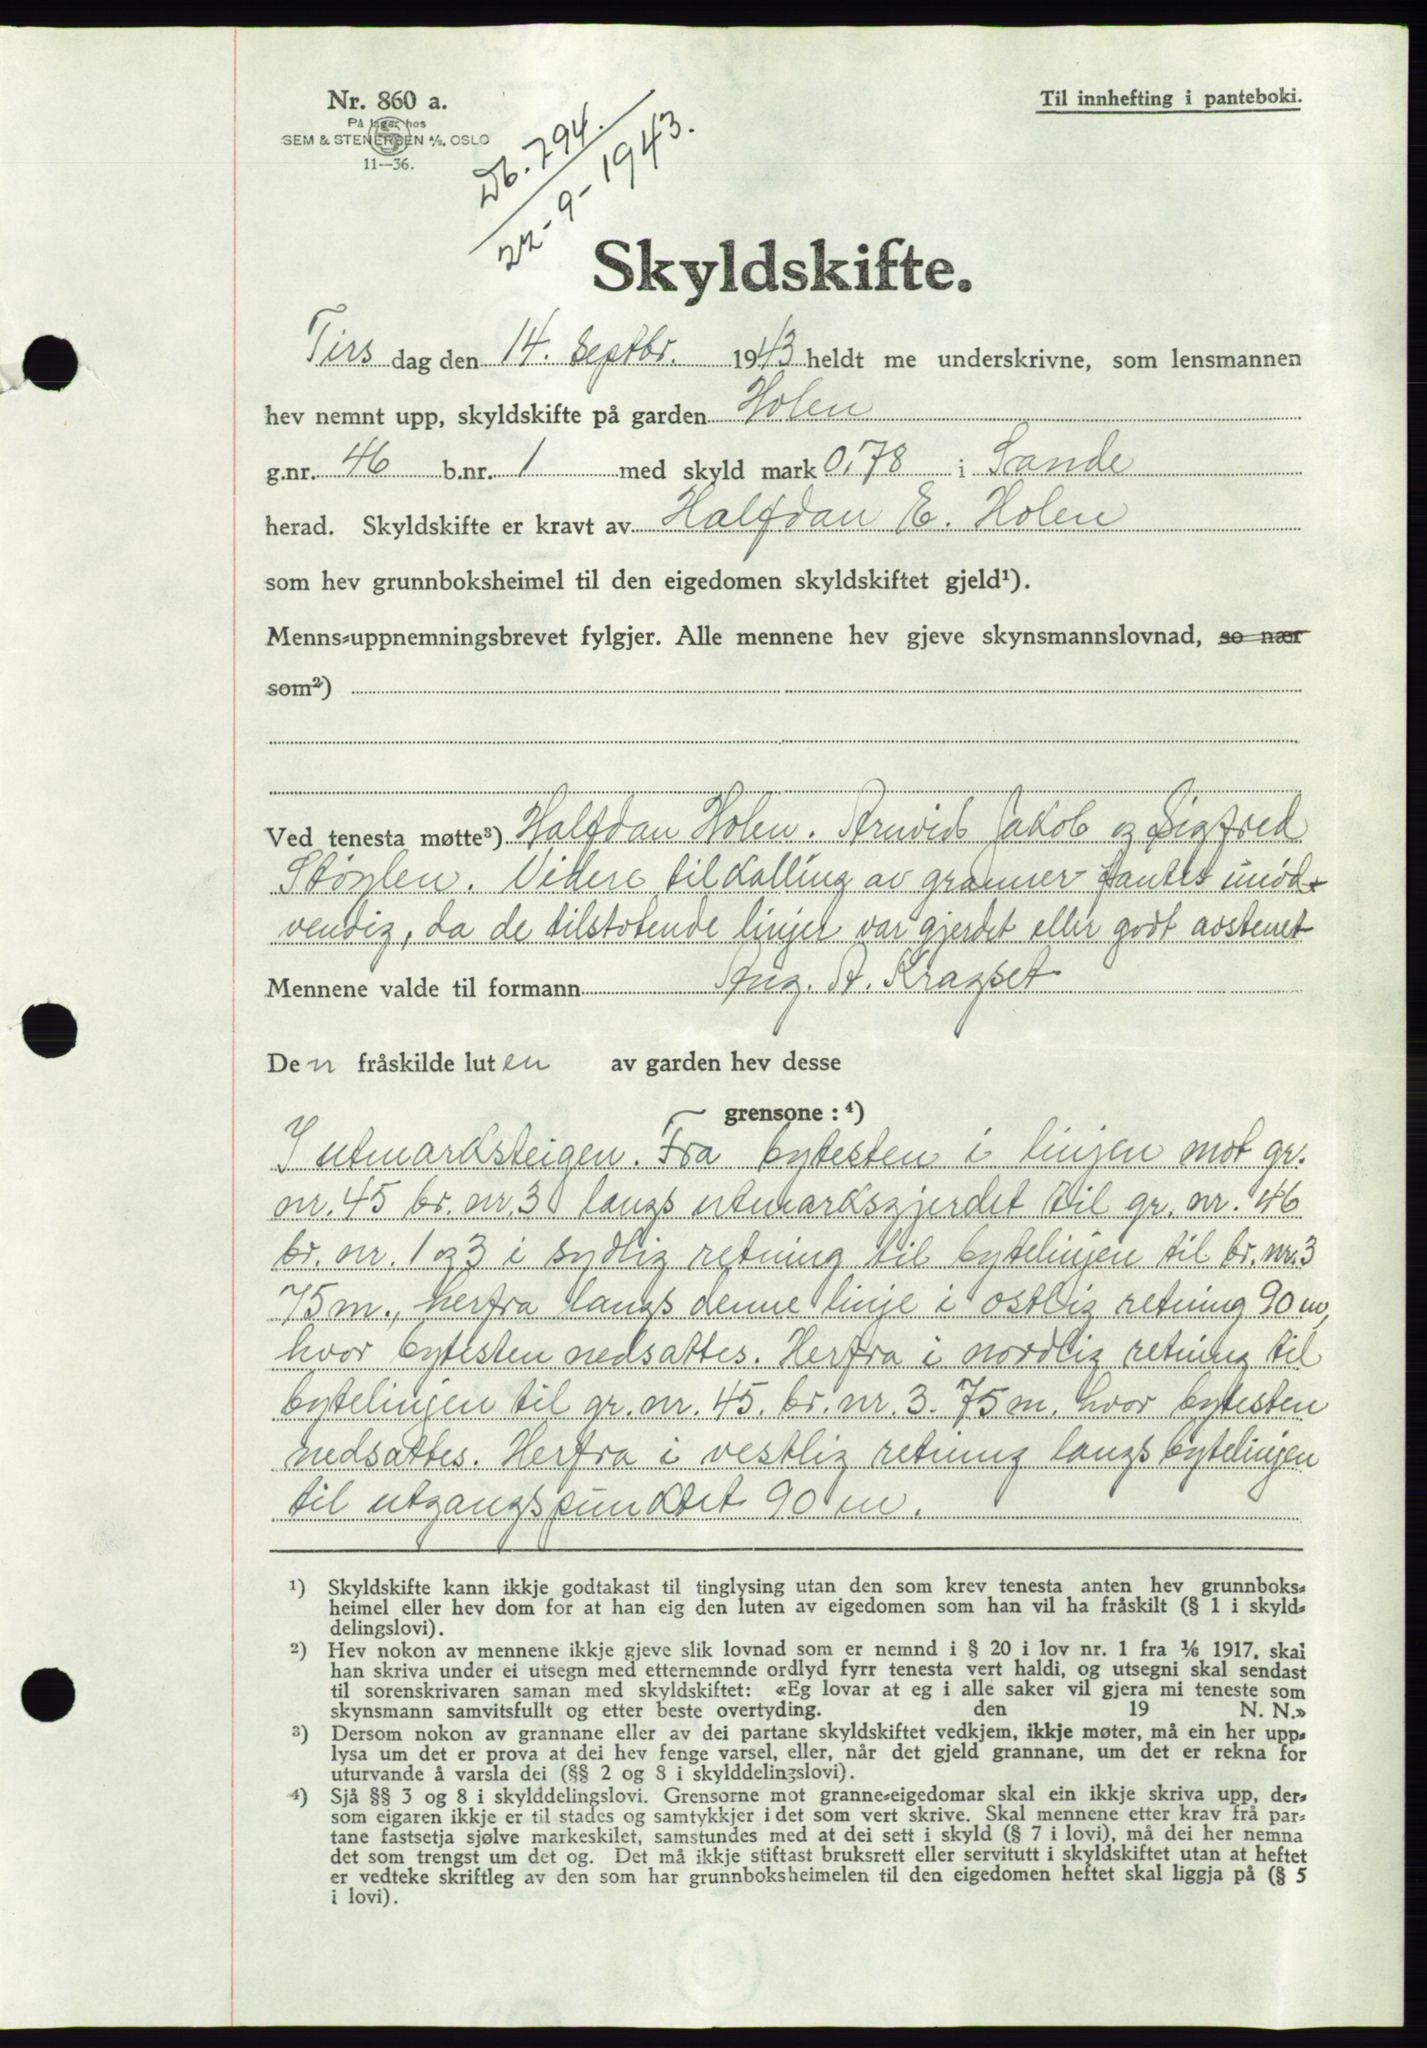 Nr. 860 a.
På lager hos
SEM & STENERSEN A/S, OSLO
11—36.
Til innhefting i panteboki.
Db. 794.
22-9-1943.
Skyldskifte.
Tirs dag den 14. Septbr. 1943 heldt me underskrivne, som lensmannen
hev nemnt upp, skyldskifte på garden Holen
g.nr. 46 b.nr. 1 med skyld mark 0,78 i Sande
herad. Skyldskifte er kravt av Halfdan E. Holen
som hev grunnboksheimel til den eigedomen skyldskiftet gjeld¹).
Menns-uppnemningsbrevet fylgjer. Alle mennene hev gjeve skynsmannslovnad, so nær
som²)
Ved tenesta møtte³) Halfdan Holen. Arnvid Jakob og Sigfred
Støylen. Videre tilkalling av granner fantes unød-
vendig, da de tilstøtende linjer var gjerdet eller godt avstenet
Mennene valde til formann Aug. A. Kragset
Den fråskilde luten av garden hev desse
grensone : ⁴)
I utmarksteigen. Fra bytesten i linjen mot gr.
nr. 45 br. nr. 3 langs utmarksgjerdet til gr. nr. 46
br. nr. 1 og 3 i sydlig retning til bytelinjen til br. nr. 3
75 m., herfra langs denne linje i østlig retning 90 m,
hvor bytesten nedsattes. Herfra i nordlig retning til
bytelinjen til gr. nr. 45. br. nr. 3. 75 m. hvor bytesten
nedsattes. Herfra i vestlig retning langs bytelinjen
til utgangspunktet 90 m.
¹) Skyldskifte kann ikkje godtakast til tinglysing utan den som krev tenesta anten hev grunnboks-
heimel eller hev dom for at han eig den luten av eigedomen som han vil ha fråskilt (§ 1 i skyld-
delingslovi).
²) Hev nokon av mennene ikkje gjeve slik lovnad som er nemnd i § 20 i lov nr. 1 fra 1/6 1917, skal
han skriva under ei utsegn med etternemnde ordlyd fyrr tenesta vert haldi, og utsegni skal sendast
til sorenskrivaren saman med skyldskiftet: «Eg lovar at eg i alle saker vil gjera mi teneste som
skynsmann samvitsfullt og etter beste overtyding. den 19 N. N.»
³) Dersom nokon av grannane eller av dei partane skyldskiftet vedkjem, ikkje møter, må ein her upp-
lysa um det er prova at dei hev fenge varsel, eller, når det gjeld grannane, um det er rekna for
uturvande å varsla dei (§§ 2 og 8 i skylddelingslovi).
⁴) Sjå §§ 3 og 8 i skylddelingslovi. Grensorne mot granne-eigedomar skal ein ikkje skriva upp, der-
som eigaren ikkje er til stades og samtykkjer i det som vert skrive. Skal mennene etter krav frå par-
tane fastsetja sjølve markeskilet, samstundes med at dei sett i skyld (§ 7 i lovi), må dei her nemna
det som trengst um det og. Det må ikkje stiftast bruksrett eller servitutt i skyldskiftet utan at heftet
er vedteke skriftleg av den som har grunnboksheimelen til den eigedomen heftet skal liggja på (§ 5
i lovi).